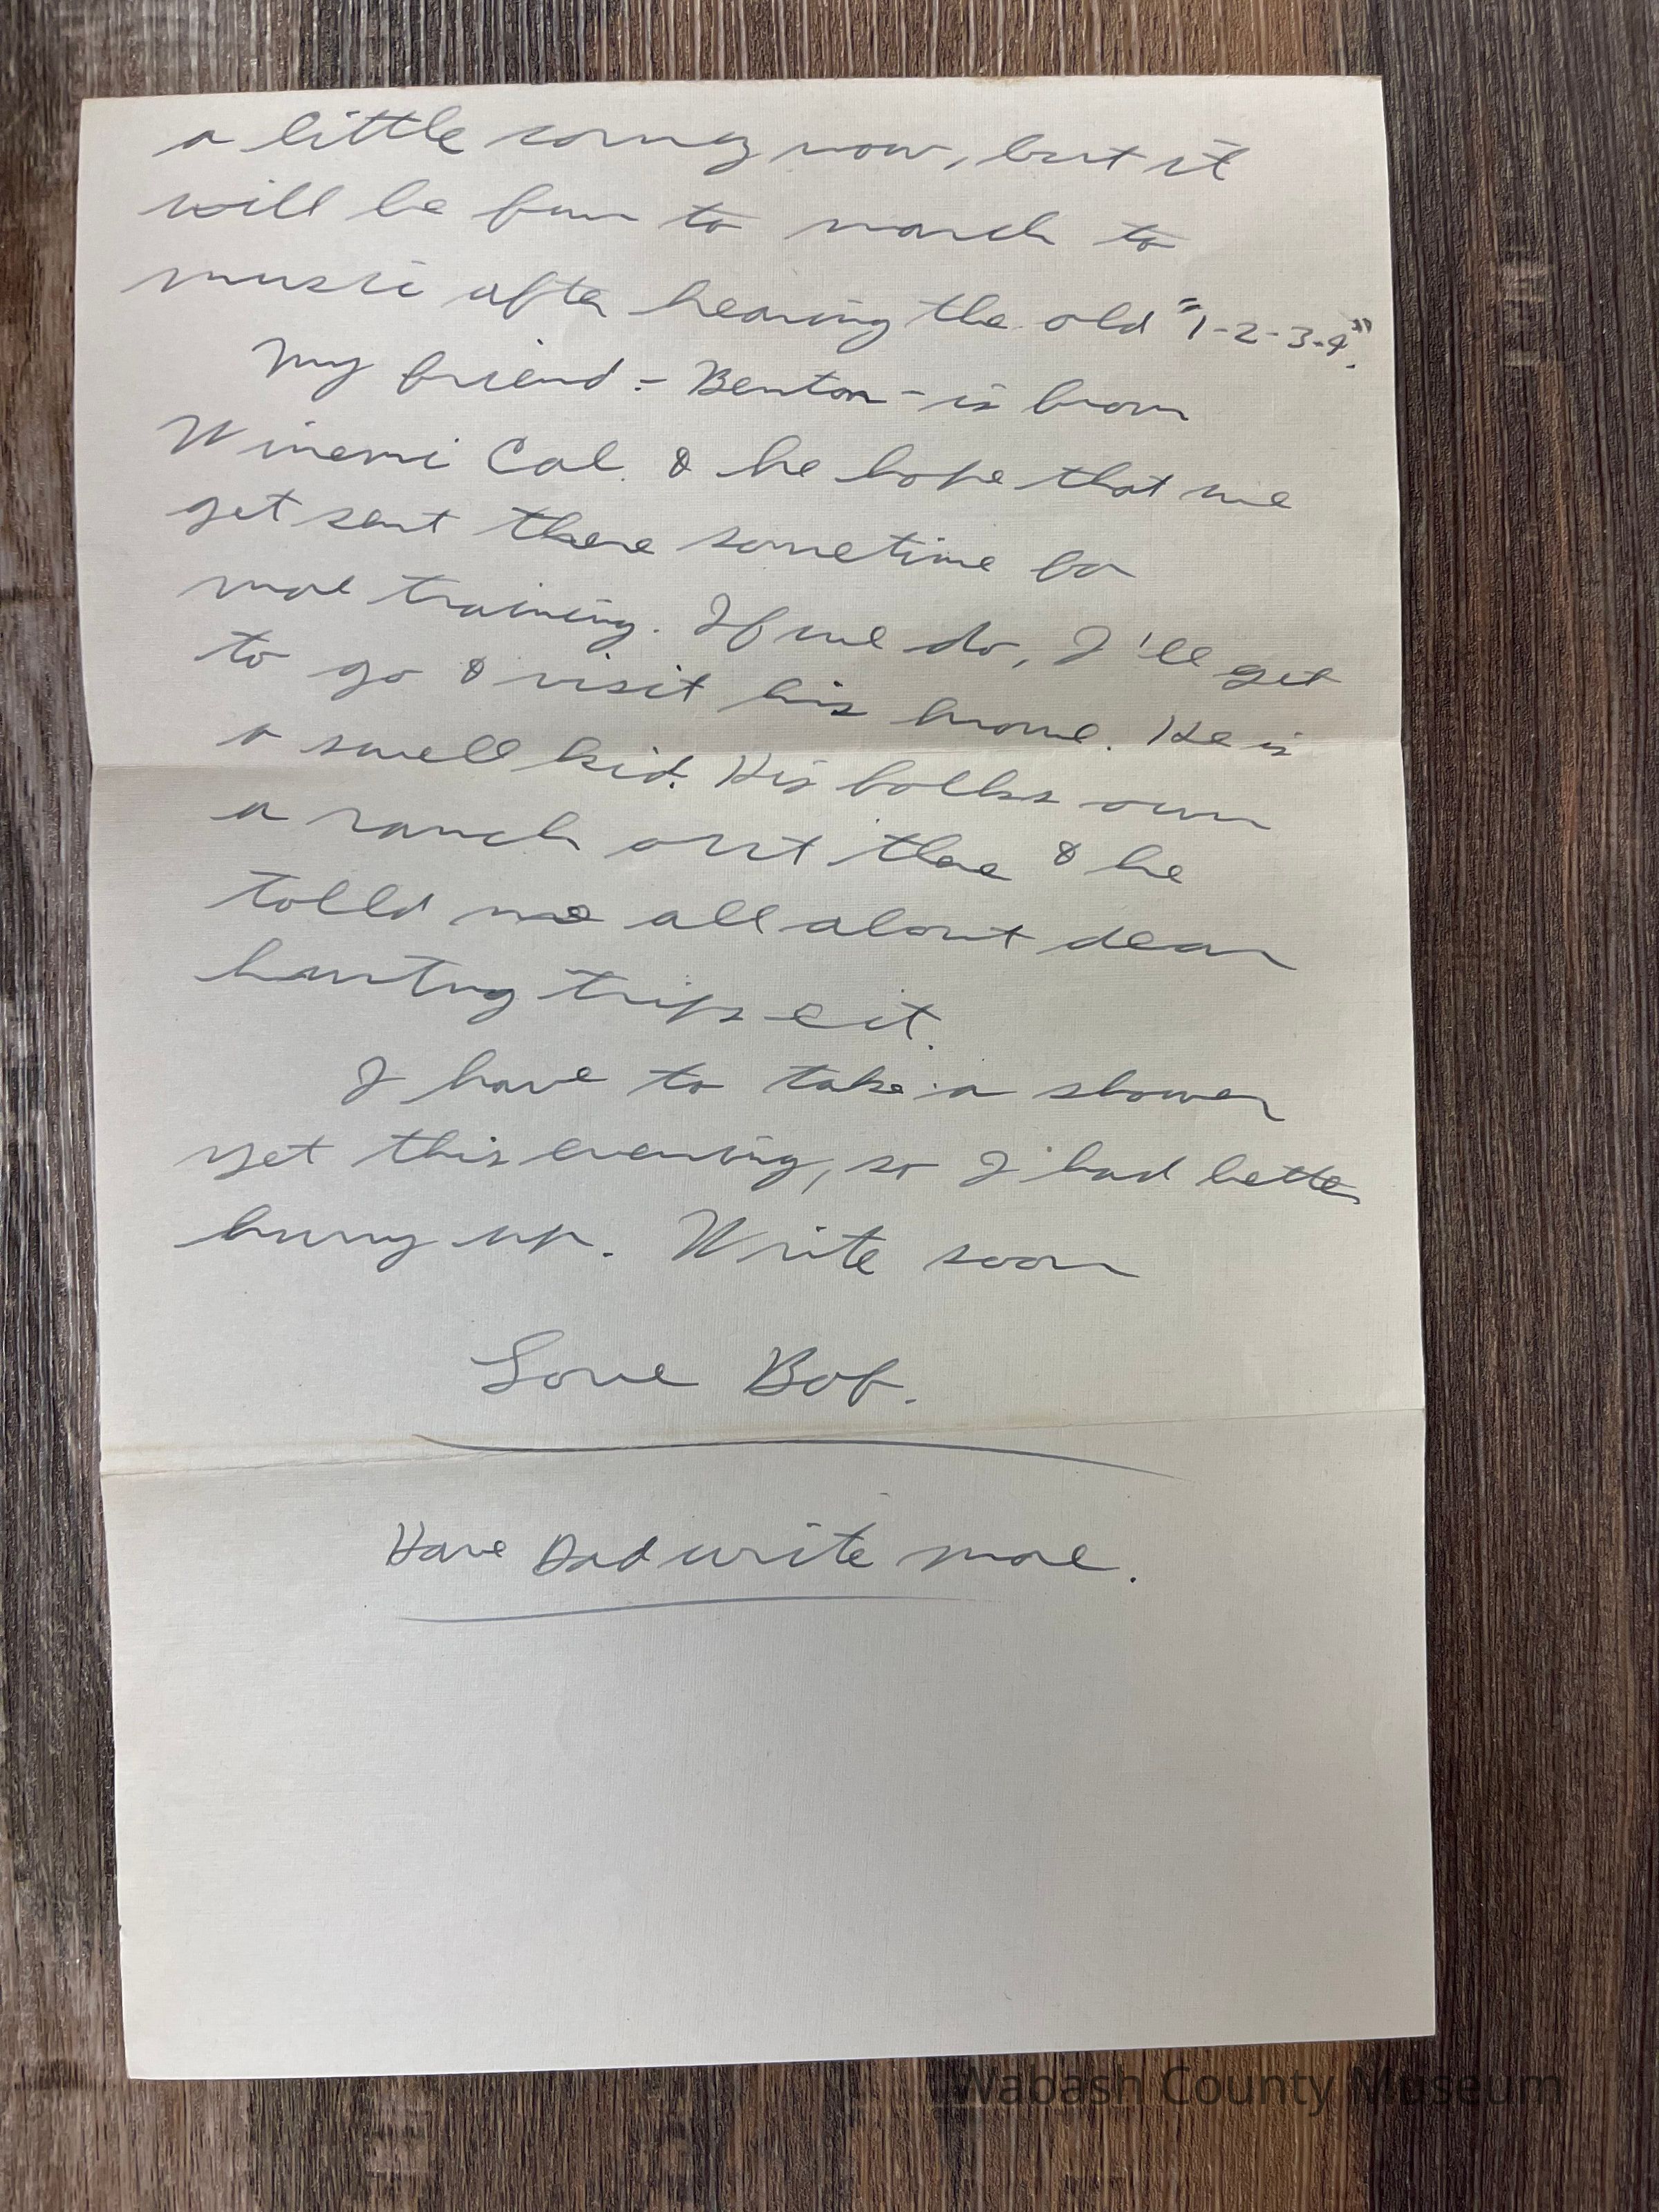 a little corney now, but it
will be fun to march to
music after hearing the old "1-2-3-4".
My friend - Benton - is from
Cal. & he hope that we
get sent there sometime for
more training. If we do, I'll get
to go & visit his home. He is
a swell kid. His folks own
a ranch out there & he
tolld me all about dear
hunting trips ect.
I have to take a shower
yet this evening, so I had better
hurry up. Write soon
Love Bob.
Have Dad write more.
Wabash County Museum